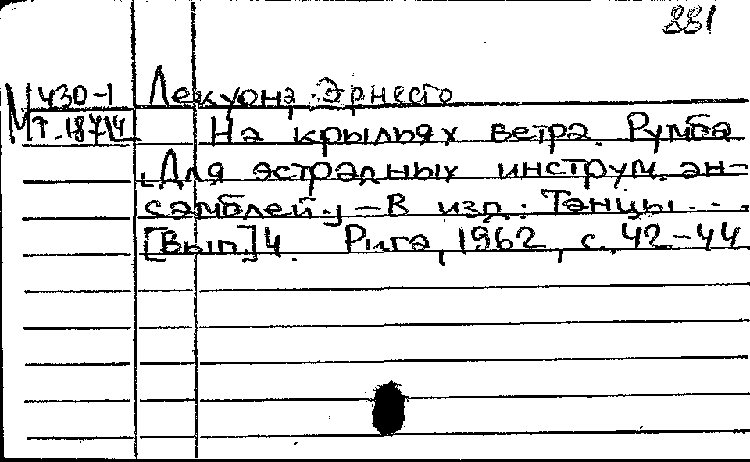 881
М 430-1 Лекуона, Эрнесто
Т-187/4 На крыльях ветра. Румба
[Для эстрадных инструм. ан-
самблей.] – В изд.: Танцы...
[Вып.] 4. Рига, 1962, с. 42-44